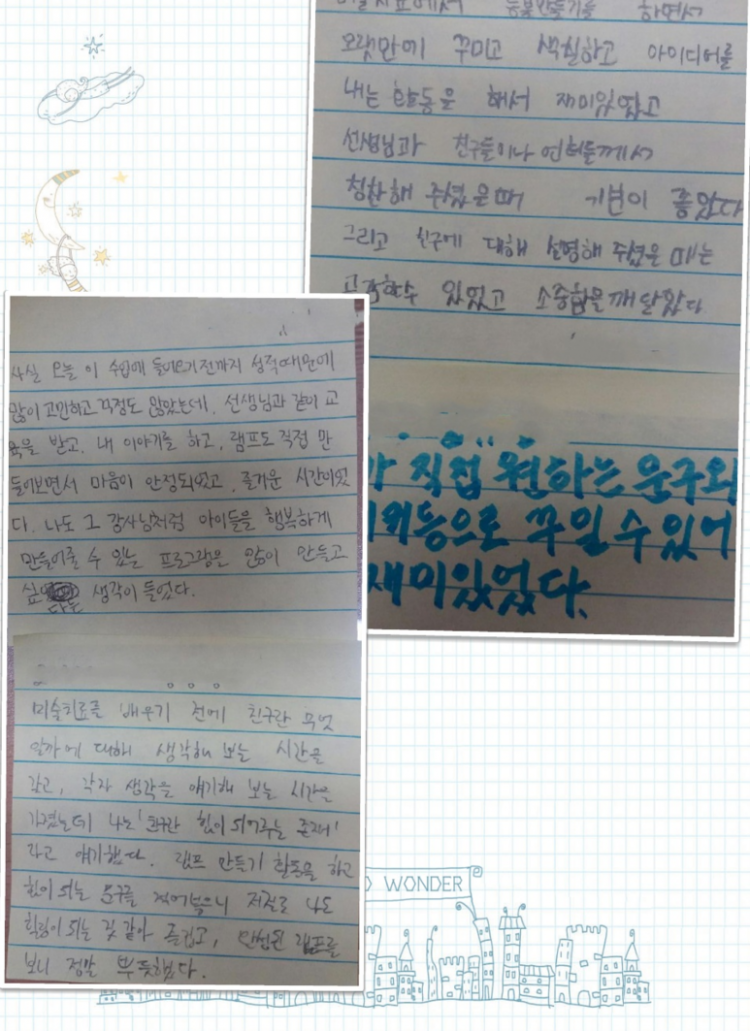 하면서
오랫만에 꾸미고 색칠하고 아이디어를
내는 활동을 해서 재미있었고
선생님과 친구들이나 언니들께서
칭찬해 주셨을때 기분이 좋았다
그리고 친구에 대해 설명해 주셨을 때는
있었고 소중함을 깨달았다
직접 원하는 문구와
꾸밀 수 있어
재미있었다.
사실 오늘 이 수업에 들어오기전까지 성적때문에
많이 고민하고 걱정도 많았는데, 선생님과 같이 교
육을 받고, 내 이야기를 하고, 램프도 직접 만
들어보면서 마음이 안정되었고, 즐거운 시간이었
다. 나도 그 강사님처럼 아이들을 행복하게
만들어줄 수 있는 프로그램은 많이 만들고
싶다는 생각이 들었다.
미술치료를 배우기 전에 친구란 무엇
일까에 대해 생각해 보는 시간을
갖고, 각자 생각을 얘기해 보는 시간을
가졌는데 나는 '친구란 힘이 되어주는 존재'
라고 얘기했다. 램프 만들기 활동을 하고
힘이 되는 문구를 적어놓으니 저절로 나도
힐링이 되는 것 같아 즐겁고, 완성된 램프를
보니 정말 뿌듯했다.
WONDER